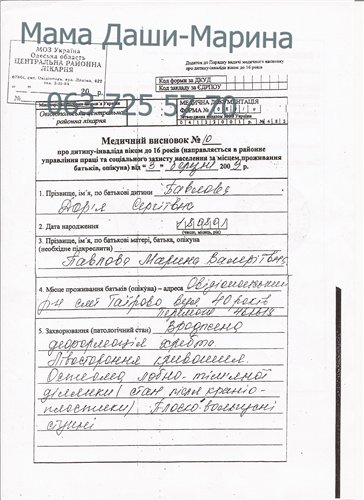 Мама Даши-Марина
МОЗ Україна
Одеська область
ЦЕНТРАЛЬНА РАЙОННА
ЛІКАРНЯ
20 р.
Додаток до Порядку видачі медичного висновку
про дитину-інваліда віком до 16 років
Код форми за ДКУД
Код закладу за ЄДРПОУ
МЕДИЧНА ДОКУМЕНТАЦІЯ
ФОРМА №
районна лікарня
Медичний висновок № 10
про дитину-інваліда віком до 16 років (направляється в районне
управління праці та соціального захисту населення за місцем проживання
батьків, опікуна) від « 3 » березня 200 р.
1. Прізвище, ім'я, по батькові дитини Павлова
Дар'я Сергіївна
2. Дата народження
(число, місяць, рік)
3. Прізвище, ім'я, по батькові матері, батька, опікуна
(необхідне підкреслити)
Павлова Марина Валеріївна
4. Місце проживання батьків (опікуна) – адреса Овідіопольський
р-н смт Таїрово вул 40 років
перемоги
5. Захворювання (патологічний стан) Вроджена
деформація хребта.
Лівостороння кривошия.
Остеомед лобно-тім'яної
ділянки (стан після краніо-
пластики) Плоско-вальгусні
стопи